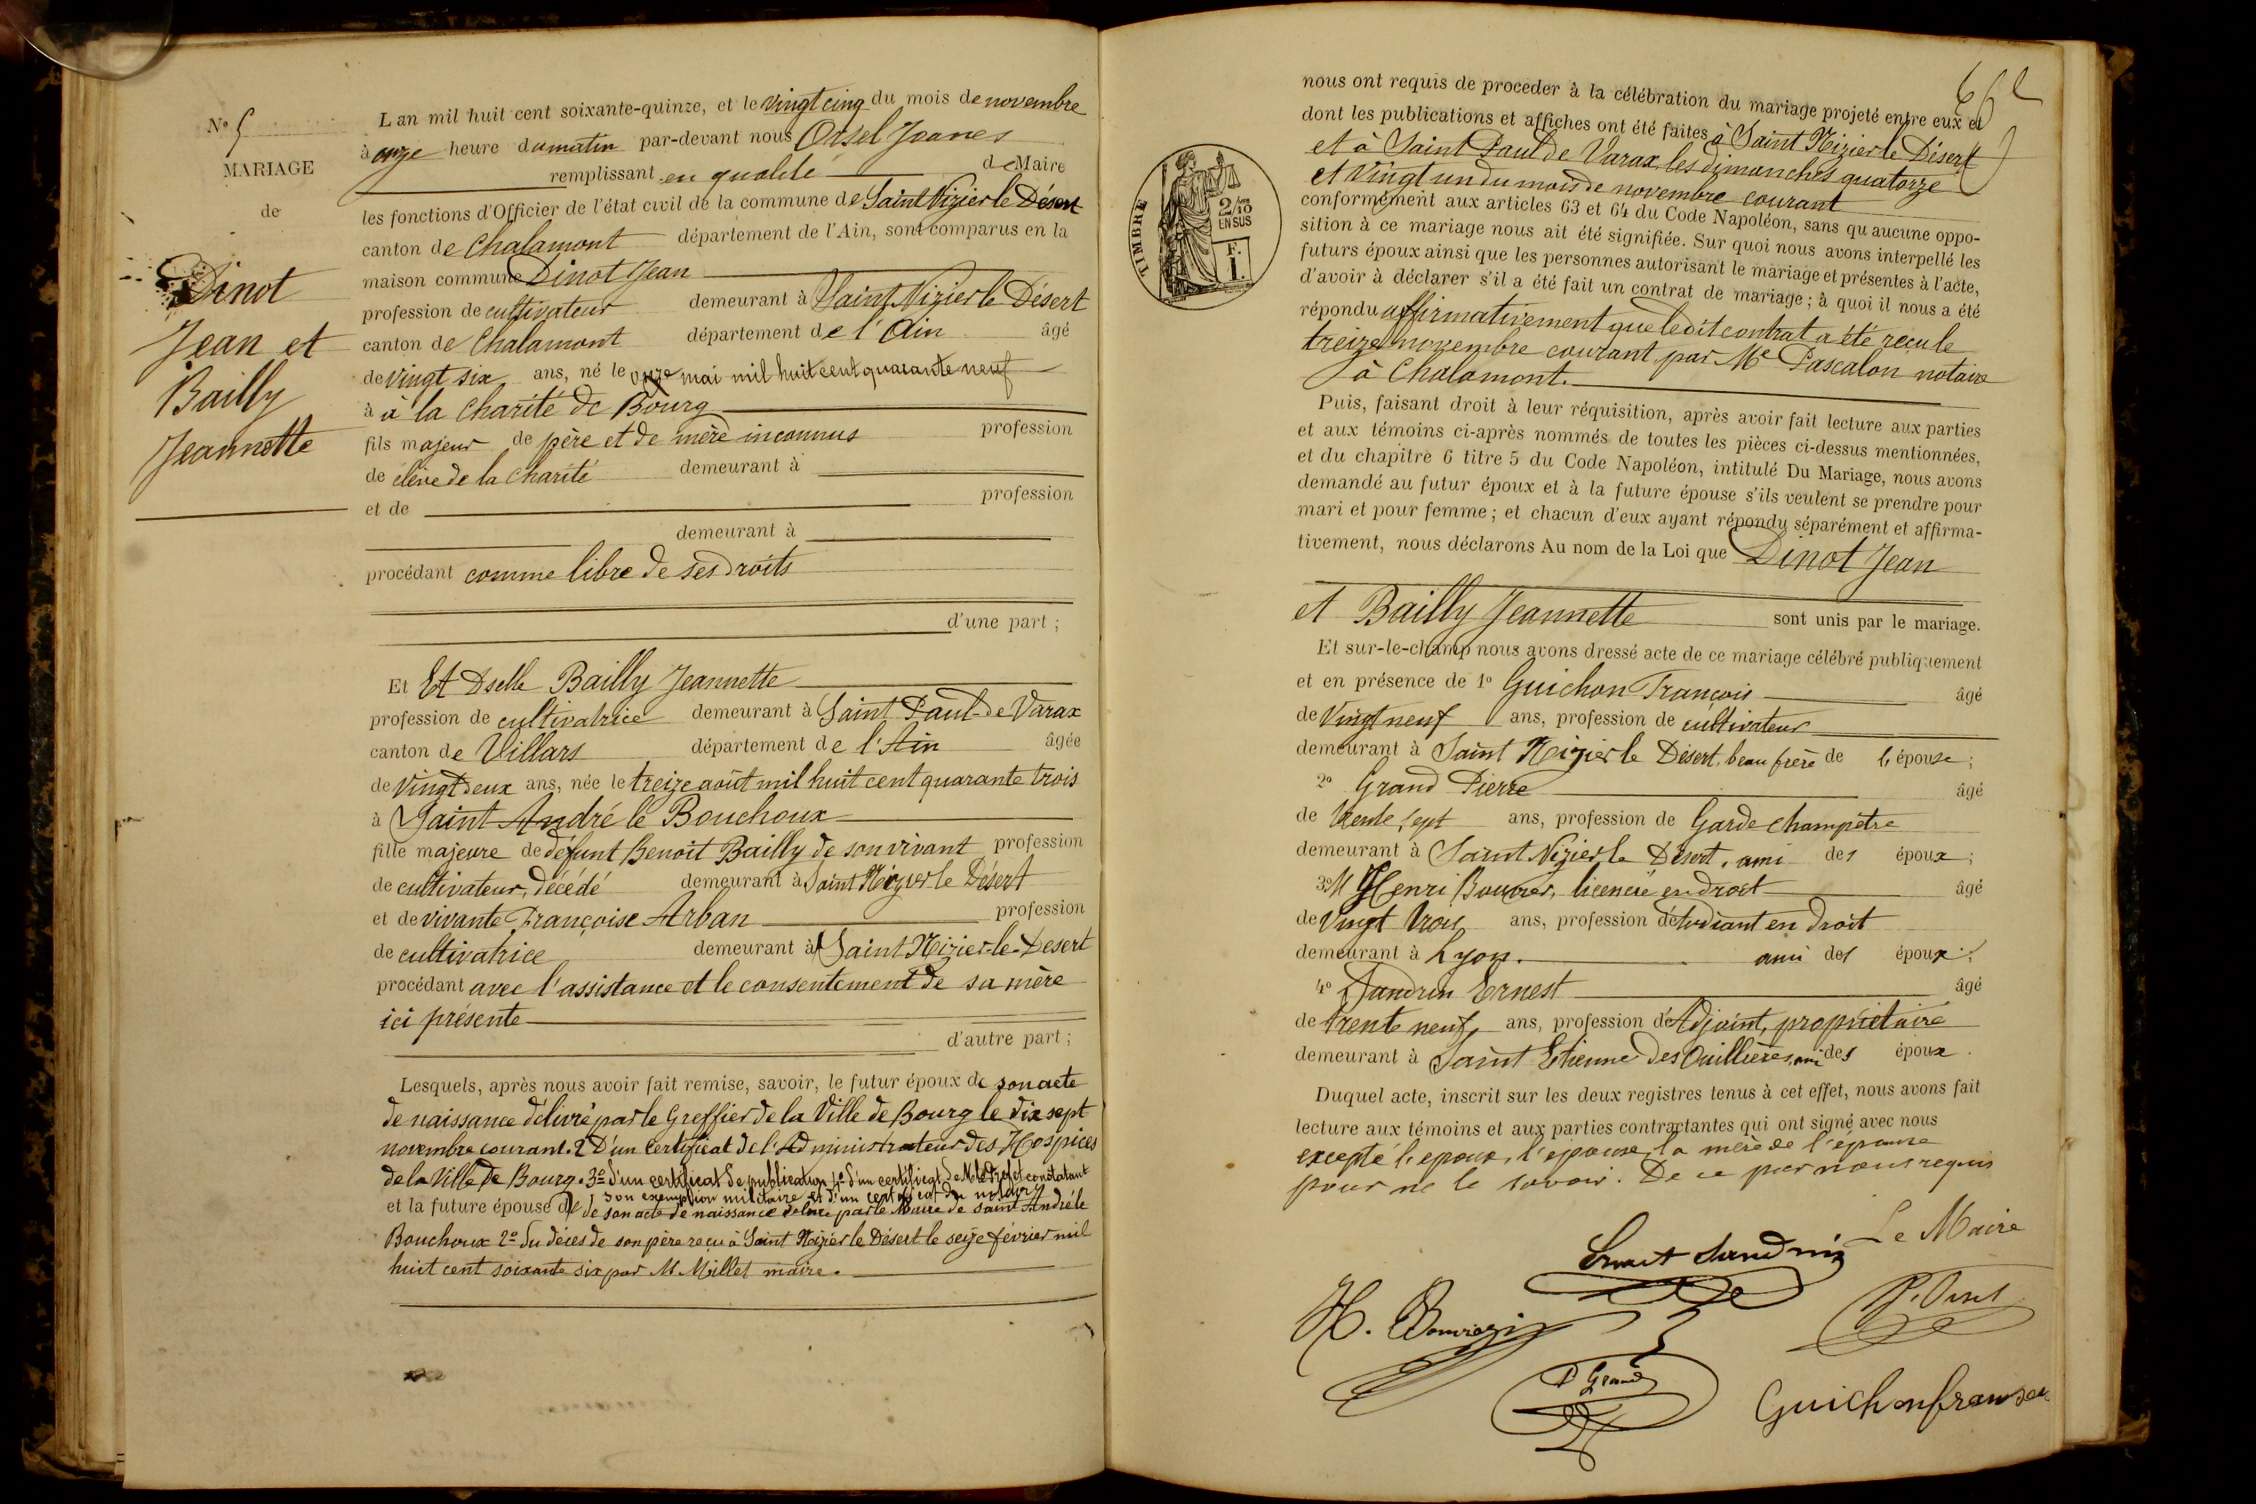 N° 5
MARIAGE
de
Dinot
Jean et
Bailly
Jeannette
L'an mil huit cent soixante-quinze, et le vingt cinq du mois de novembre
à onze heure du matin par-devant nous Orsel Joanes
remplissant en qualité de Maire
les fonctions d'Officier de l'état civil de la commune de Saint Nizier le Désert
canton de Chalamont département de l'Ain, sont comparus en la
maison commune Dinot Jean
profession de cultivateur demeurant à Saint Nizier le Désert
canton de Chalamont département de l'Ain âgé
de vingt six ans, né le onze mai mil huit cent quarante neuf
à à la Charité de Bourg
fils majeur de père et de mère inconnus profession
de élève de la Charité demeurant à
et de profession
demeurant à
procédant comme libre de ses droits
d'une part ;
Et Et Dselle Bailly Jeannette
profession de cultivatrice demeurant à Saint Paul-de Varax
canton de Villars département de l'Ain âgée
de vingt deux ans, née le treize août mil huit cent quarante trois
à Saint André le Bouchoux
fille majeure de défunt Benoit Bailly de son vivant profession
de cultivateur, décédé demeurant à Saint Nizier le Désert
et de vivante Françoise Arban profession
de cultivatrice demeurant à Saint Nizier-le-Desert
procédant avec l'assistance et le consentement de sa mère
ici présente
d'autre part ;
Lesquels, après nous avoir fait remise, savoir, le futur époux de son acte
de naissance délivré par le Greffier de la Ville de Bourg le dix sept
novembre courant. 2 D'un certificat de l'Administrateur des Hospices
de la Ville de Bourg. 3° d'un certificat de publication 4° d'un certificat de M le Préfet constatant
son exemption militaire et d'un certificat du notaire
et la future épouse de 1 de son acte de naissance délivré par le Maire de Saint André le
Bouchoux 2° du décès de son père reçu à Saint Nizier le Désert le seize février mil
huit cent soixante six par M. Millet maire.
nous ont requis de procéder à la célébration du mariage projeté entre eux et
dont les publications et affiches ont été faites à Saint Nizier le Désert
et à Saint Paul de Varax les dimanches quatorze
et vingt un du mois de novembre courant
conformément aux articles 63 et 64 du Code Napoléon, sans qu'aucune oppo-
sition à ce mariage nous ait été signifiée. Sur quoi nous avons interpellé les
futurs époux ainsi que les personnes autorisant le mariage et présentes à l'acte,
d'avoir à déclarer s'il a été fait un contrat de mariage ; à quoi il nous a été
répondu affirmativement que ledit contrat a été reçu le
treize novembre courant par Me Pascalon notaire
à Chalamont.
TIMBRE
2/10 EN SUS
F. 1.
Puis, faisant droit à leur réquisition, après avoir fait lecture aux parties
et aux témoins ci-après nommés de toutes les pièces ci-dessus mentionnées,
et du chapitre 6 titre 5 du Code Napoléon, intitulé Du Mariage, nous avons
demandé au futur époux et à la future épouse s'ils veulent se prendre pour
mari et pour femme ; et chacun d'eux ayant répondu séparément et affirma-
tivement, nous déclarons Au nom de la Loi que Dinot Jean
et Bailly Jeannette sont unis par le mariage.
Et sur-le-champ nous avons dressé acte de ce mariage célébré publiquement
et en présence de 1° Guichon François âgé
de Vingt neuf ans, profession de cultivateur
demeurant à Saint Nizier le Désert, beau frère de l'épouse ;
2° Grand Pierre âgé
de trente sept ans, profession de Garde champêtre
demeurant à Saint Nizier le Désert, ami des époux ;
3° M Henri Bouvier, licencié en droit âgé
de vingt trois ans, profession d'étudiant en droit
demeurant à Lyon. ami des époux ;
4° Sandrin Ernest âgé
de trente neuf ans, profession d'Adjoint, propriétaire
demeurant à Saint Etienne des Ouillières, ami des époux.
Duquel acte, inscrit sur les deux registres tenus à cet effet, nous avons fait
lecture aux témoins et aux parties contractantes qui ont signé avec nous
excepté l'époux, l'épouse, la mère de l'épouse
pour ne le savoir. De ce par nous requis
Le Maire
Ernest Sandrin
H. Bouvier
P Grand
Guichon franse